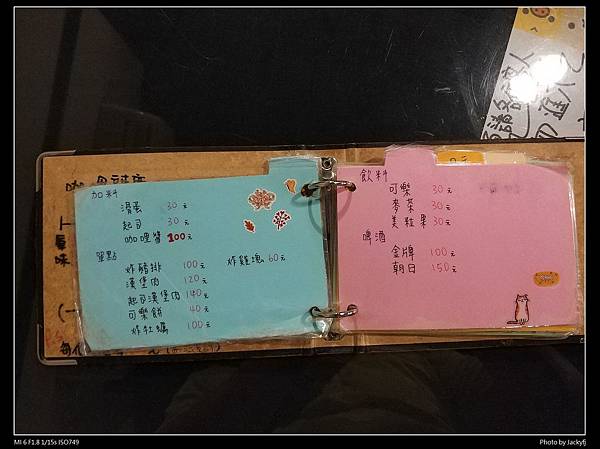 加料
滑蛋 30元
起司 30元
咖哩醬 100元
單點
炸豬排 100元
炸雞塊 60元
漢堡肉 120元
起司漢堡肉 140元
可樂餅 40元
炸牡蠣 100元
飲料
可樂 30元
麥茶 30元
美粒果 30元
啤酒
金牌 100元
朝日 150元
MI 6 F1.8 1/15s ISO749
Photo by Jackyfj